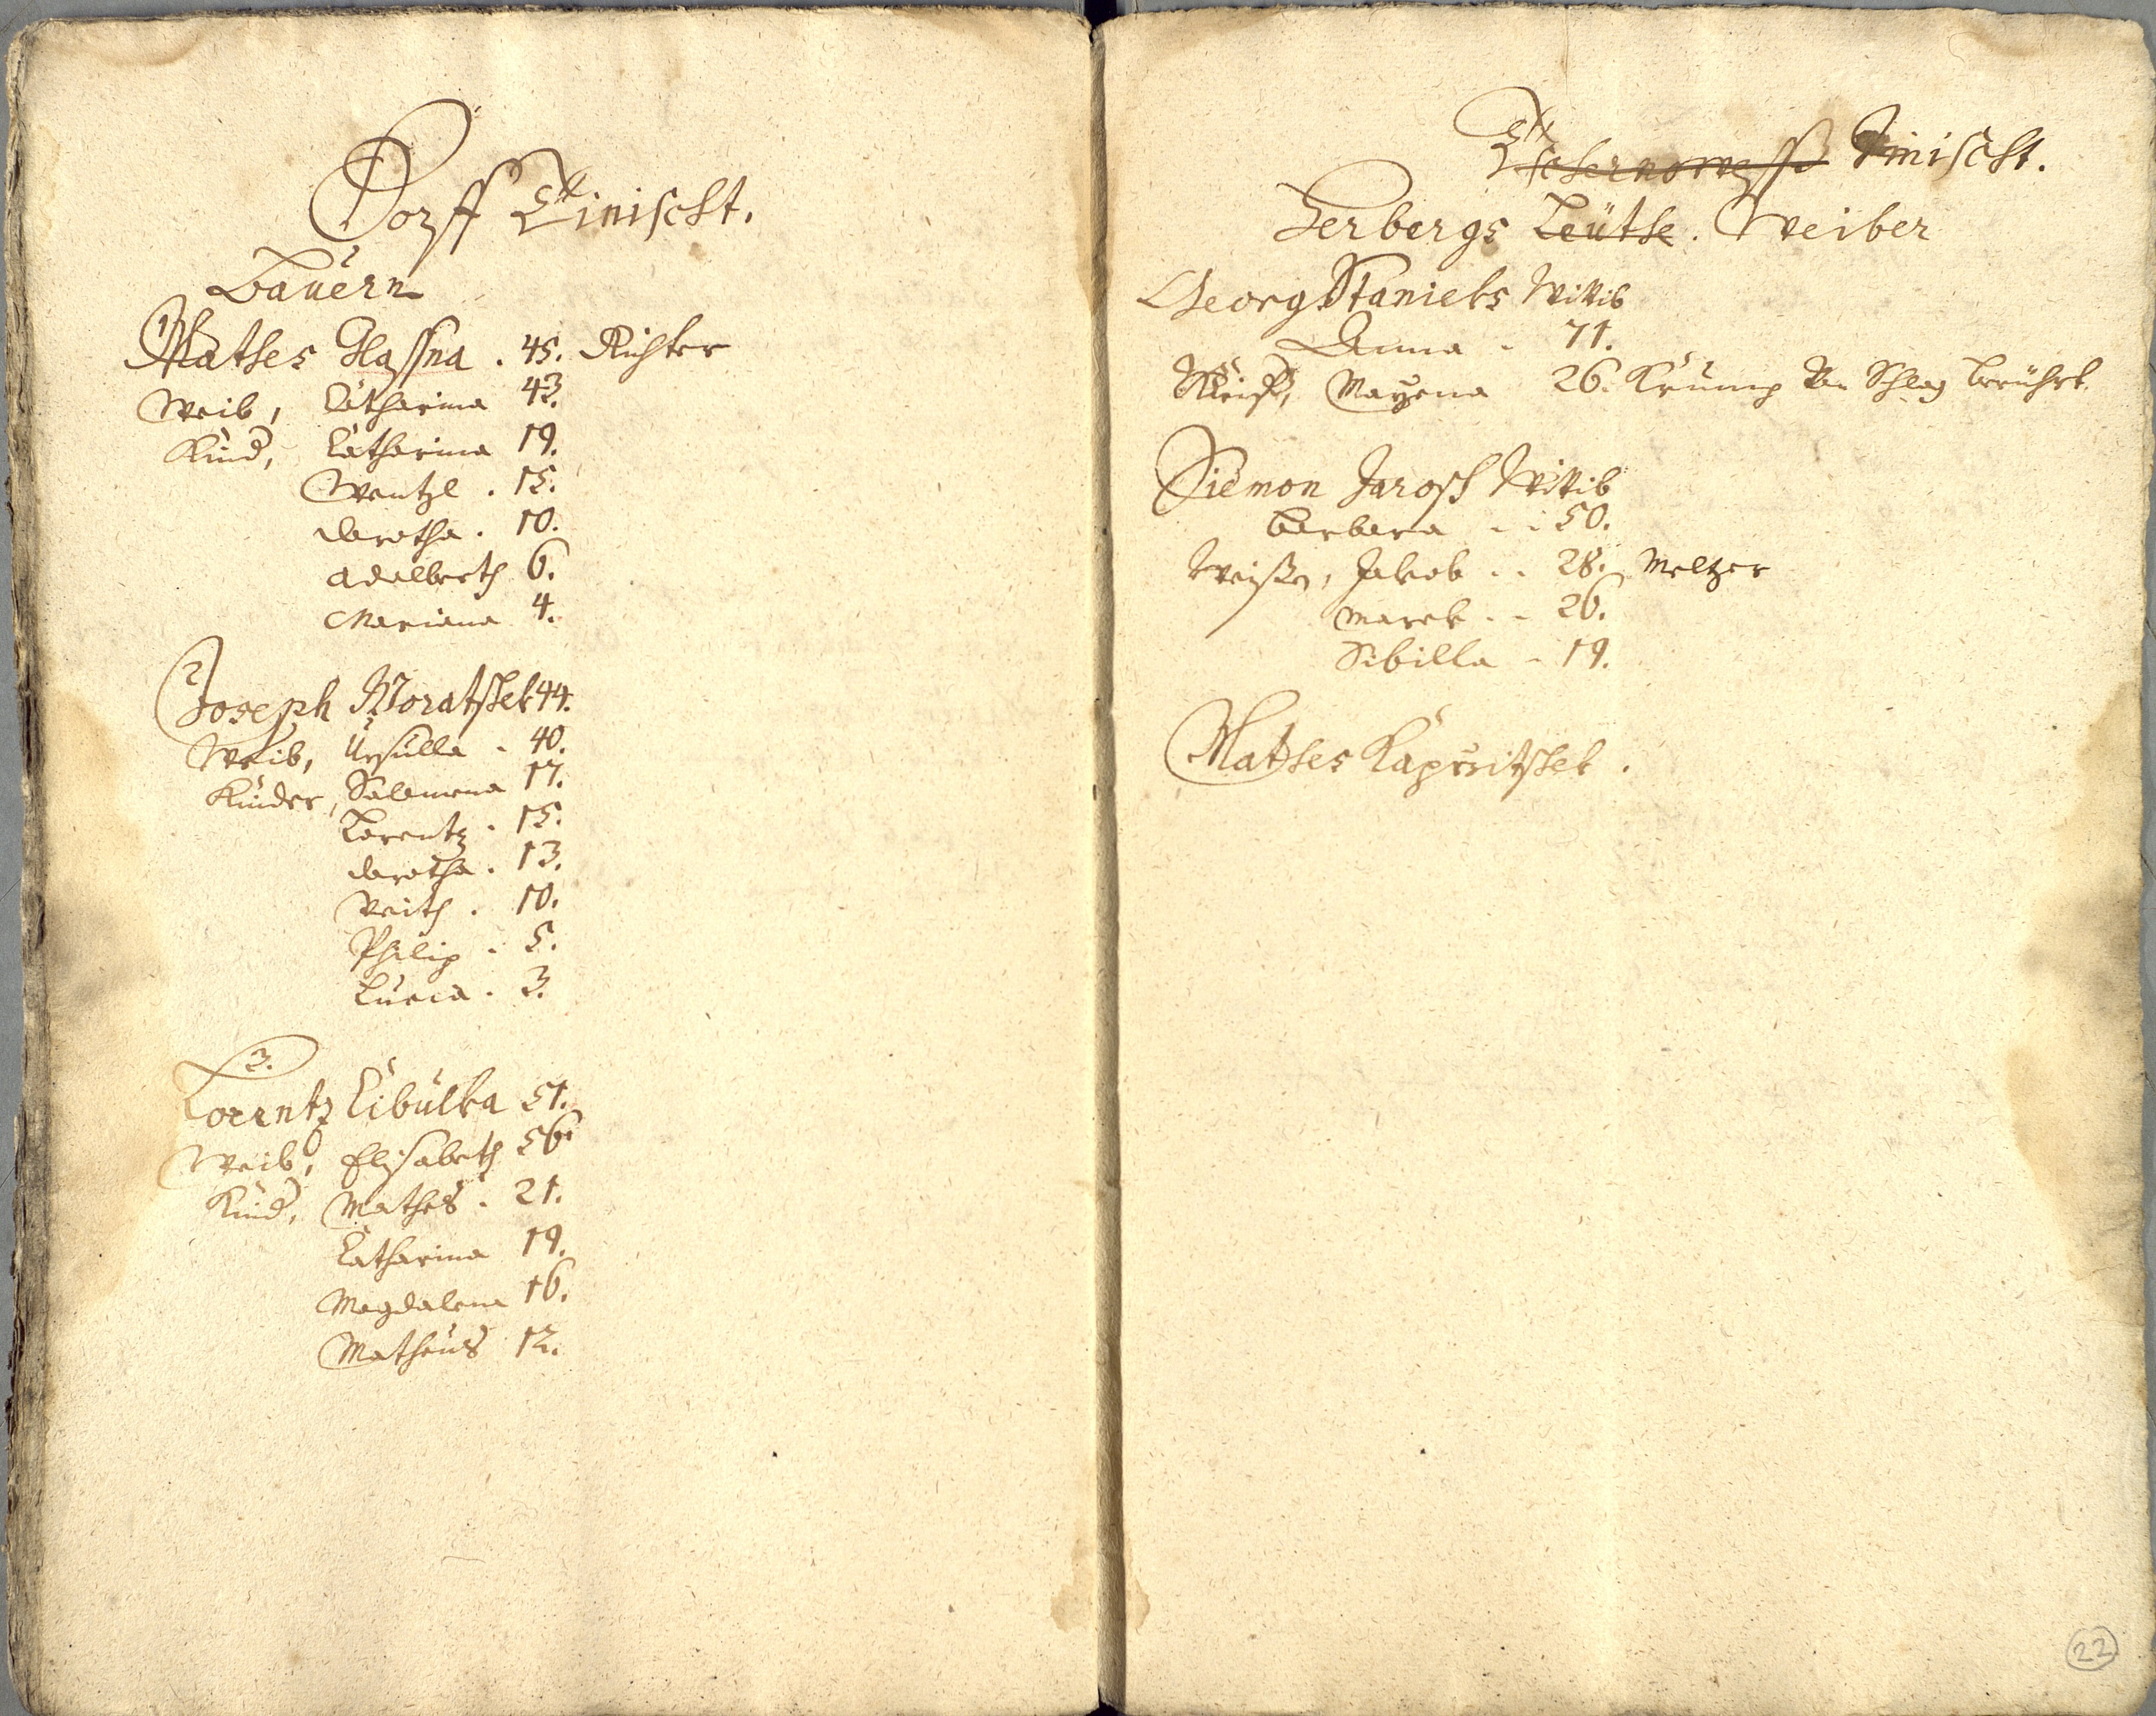 Dorff Zinischt.
Bauern
1
Mathes Hassna . 45. Richter
Weib, Catharina 43.
Kind, Catharina 19.
Wentzl . 15.
Dorotha . 10.
Adalberth 6.
Mariana 4.
2
Joseph Moratschek 44.
Weib, Ursulla . 40.
Kinder, Salomena 17.
Lorentz . 15.
Dorotha . 13.
Veith . 10.
Philip . 5.
Lucia . 3.
3.
Lorentz Cibulka 51.
Weib, Elisabeth 56.
Kind, Mathes . 21.
Catharina 19.
Magdalena 16.
Matheus 12.
Zinischt.
Herbergs Leüthe . Weiber
Georg Stanieks Wittib
Anna . 71.
Weiß, Mayena 26. Krump Schlag berührt
Siemon Jarosch Wittib
Barbara . . 50.
Weißn, Jakob . . 28. Meltzer
Marek . . 26.
Sibilla . 19.
Mathes Kapritschek .
22